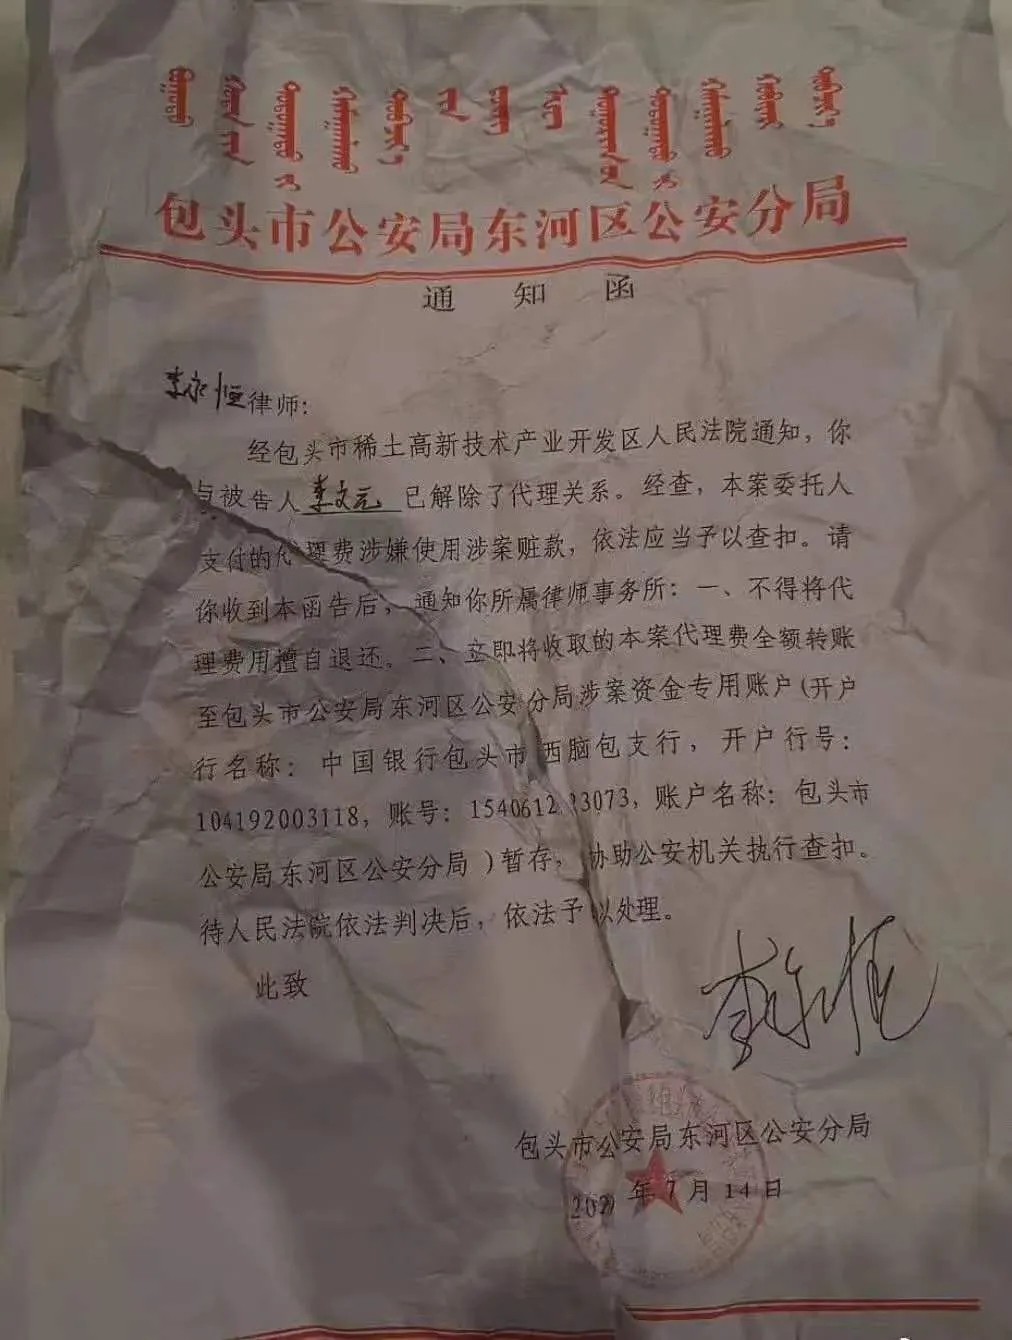 包头市公安局东河区公安分局
通知函
李永恒律师：
经包头市稀土高新技术产业开发区人民法院通知，你
与被告人李文元已解除了代理关系。经查，本案委托人
支付的代理费涉嫌使用涉案赃款，依法应当予以查扣。请
你收到本函告后，通知你所属律师事务所：一、不得将代
理费用擅自退还。二、立即将收取的本案代理费全额转账
至包头市公安局东河区公安分局涉案资金专用账户(开户
行名称：中国银行包头市西脑包支行，开户行号：
104192003118，账号：1540612 3073，账户名称：包头市
公安局东河区公安分局 )暂存，协助公安机关执行查扣。
待人民法院依法判决后，依法予以处理。
此致
李永恒
包头市公安局东河区公安分局
年7月14日